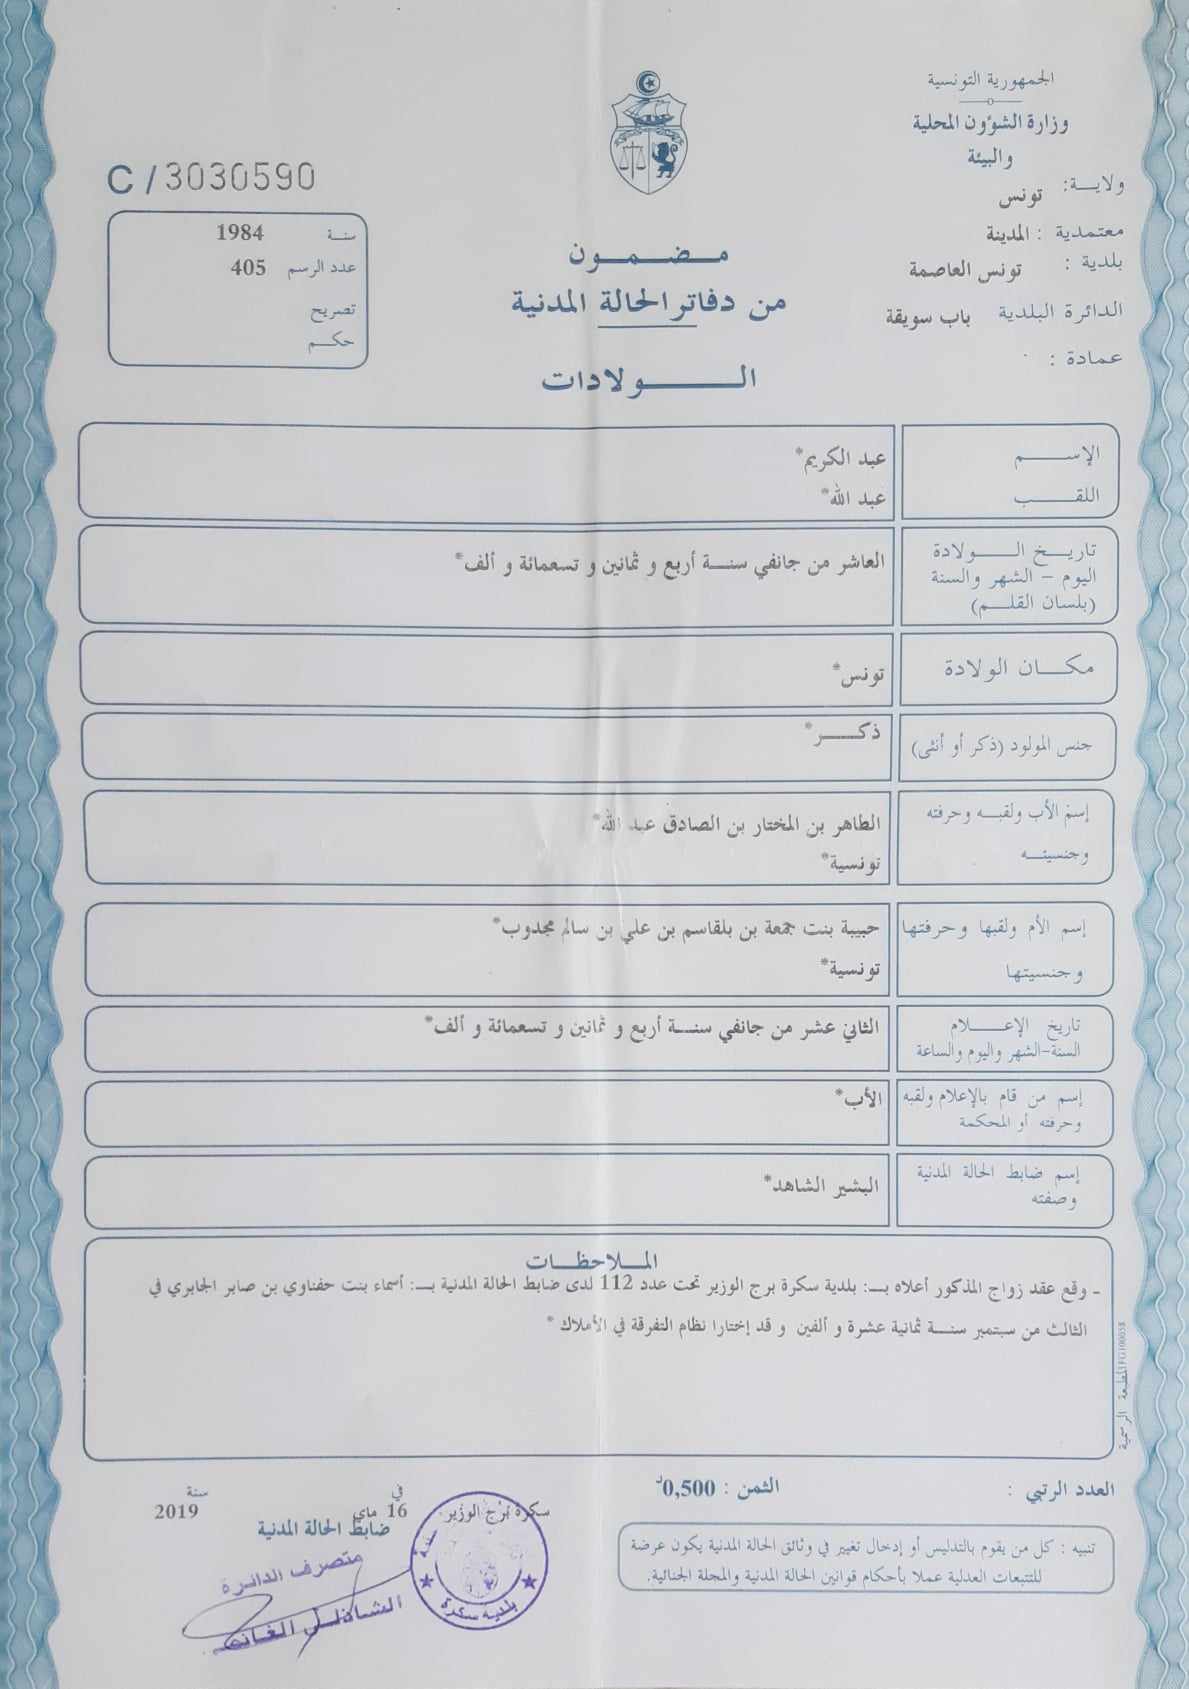 الجمهورية التونسية
وزارة الشؤون المحلية
والبيئة
ولايـــة: تونس
معتمدية : المدينة
بلدية : تونس العاصمة
الدائرة البلدية باب سويقة
عمادة :
C / 3030590
سنـــة 1984
عدد الرسم 405
تصريح
حكـــم
مـــضـــمـــون
من دفاتر الحالة المدنية
الـــــولادات
الإســــــم عبد الكريم*
اللقــــــب عبد الله*
تاريـــخ الــــــولادة
اليوم – الشهر والسنة
(بلسان القلـــم)
العاشر من جانفي سنـــة أربع و ثمانين و تسعمائة و ألف*
مكـــان الولادة تونس*
جنس المولود (ذكر أو أنثى) ذكـــــر*
إسم الأب ولقبـــه وحرفته
وجنسيتـــه
الطاهر بن المختار بن الصادق عبد الله*
تونسية*
إسم الأم ولقبها وحرفتها
وجنسيتها
حبيبة بنت جمعة بن بلقاسم بن علي بن سالم مجدوب*
تونسية*
تاريخ الإعــــلام
السنة-الشهر واليوم والساعة
الثاني عشر من جانفي سنـــة أربع و ثمانين و تسعمائة و ألف*
إسم من قام بالإعلام ولقبه
وحرفته أو المحكمة
الأب*
إسم ضابط الحالة المدنية
وصفته
البشير الشاهد*
المــلاحظــات
ـ وقع عقد زواج المذكور أعلاه بـ: بلدية سكرة برج الوزير تحت عدد 112 لدى ضابط الحالة المدنية بـ: أسماء بنت حفناوي بن صابر الجابري في
الثالث من سبتمبر سنـــة ثمانية عشرة و ألفين و قد إختارا نظام التفرقة في الأملاك *
المطبعة الرسمية
العدد الرتبي :
الثمن : 0,500د
تنبيه : كل من يقوم بالتدليس أو إدخال تغيير في وثائق الحالة المدنية يكون عرضة
للتتبعات العدلية عملا بأحكام قوانين الحالة المدنية والمجلة الجنائية.
سكرة برج الوزير في 16 ماي سنة 2019
ضابط الحالة المدنية
متصرف الدائرة
الشاذلي
بلدية سكرة